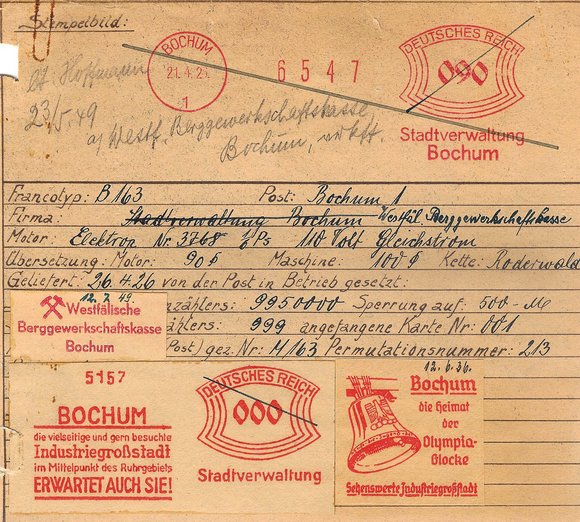 Stempelbild:
BOCHUM
21.4.2
1
6547
DEUTSCHES REICH
090
Stadtverwaltung
Bochum
lt. Hoffmann
23/5 49
a/ Westf. Berggewerkschaftskasse,
Bochum, verkft.
Francotyp: B 163 Post: Bochum 1
Firma: Stadtverwaltung Bochum Westfäl. Berggewerkschaftskasse
Motor: Elektron Nr. 3768 1/2 Ps 110 Volt Gleichstrom
Übersetzung: Motor: 90 Maschine: 100 Kette: Roderwald
Geliefert: 26.4.26 von der Post in Betrieb gesetzt:
12.7.49
enzählers: 9950000 Sperrung auf: 500.-M
Westfälische
Berggewerkschaftskasse
Bochum
zählers: 999 angefangene Karte Nr: 001
Post) gez. Nr: M163 Permutationsnummer: 213
5157
BOCHUM
die vielseitige und gern besuchte
Industriegroßstadt
im Mittelpunkt des Ruhrgebiets
ERWARTET AUCH SIE!
DEUTSCHES REICH
000
Stadtverwaltung
12.6.36.
Bochum
die Heimat
der
Olympia-
Glocke
Sehenswerte Industriegroßstadt